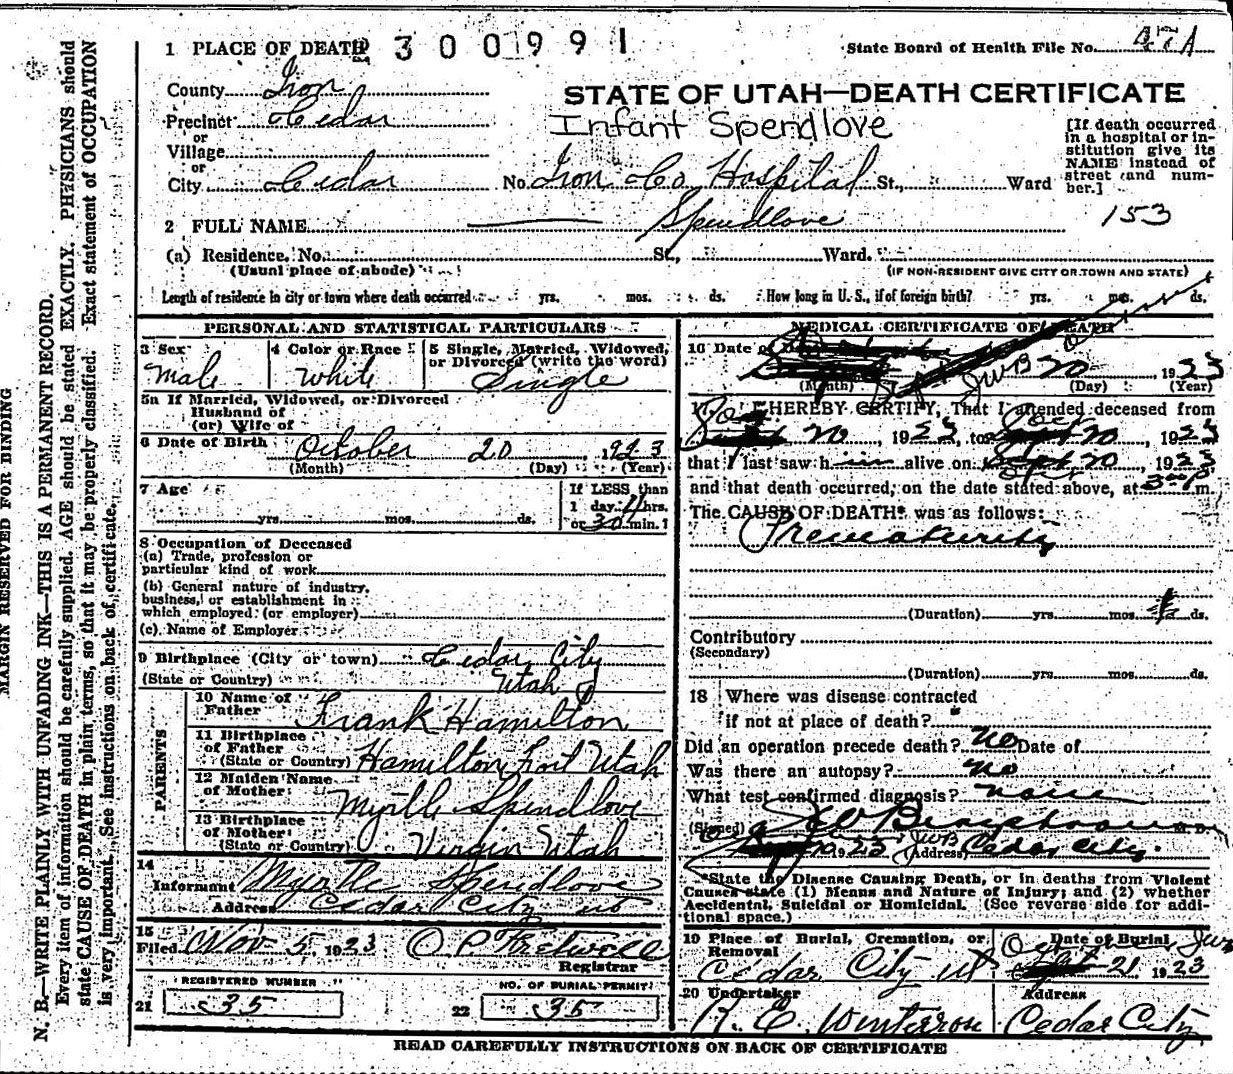 1 PLACE OF DEATH 300991
State Board of Health File No. 471
County Iron
STATE OF UTAH—DEATH CERTIFICATE
Precinct Cedar
Infant Spendlove
or
Village
or
City Cedar No. Iron Co Hospital St., Ward
[If death occurred
in a hospital or in-
stitution give its
NAME instead of
street and num-
ber.]
153
2 FULL NAME Spendlove
(a) Residence. No. St., Ward.
(Usual place of abode)
(IF NON-RESIDENT GIVE CITY OR TOWN AND STATE)
Length of residence in city or town where death occurred yrs. mos. ds. How long in U. S., if of foreign birth? yrs. mos. ds.
PERSONAL AND STATISTICAL PARTICULARS
3 Sex
Male
4 Color or Race
White
5 Single, Married, Widowed,
or Divorced (write the word)
Single
5a If Married, Widowed, or Divorced
Husband of
(or) Wife of
6 Date of Birth October 20 1923
(Month) (Day) (Year)
7 Age
yrs. mos. ds.
If LESS than
1 day 4 hrs.
or 30 min. 1
8 Occupation of Deceased
(a) Trade, profession or
particular kind of work
(b) General nature of industry,
business, or establishment in
which employed (or employer)
(c) Name of Employer
9 Birthplace (City or town) Cedar City
(State or Country) Utah
PARENTS
10 Name of
Father Frank Hamilton
11 Birthplace
of Father
(State or Country) Hamilton Fort Utah
12 Maiden Name
of Mother Myrtle Spendlove
13 Birthplace
of Mother
(State or Country) Virgin Utah
14
Informant Myrtle Spendlove
Address Cedar City Ut
15
Filed Nov 5, 1923 O. P. Fretwell
Registrar
REGISTERED NUMBER
21 35
NO. OF BURIAL PERMIT
22 35
MEDICAL CERTIFICATE OF DEATH
16 Date of JWB 20 1923
(Month) (Day) (Year)
I HEREBY CERTIFY, That I attended deceased from
20, 1923, to Oct 20, 1923
that I last saw him alive on 20, 1923
and that death occurred, on the date stated above, at 3:00 P.m.
The CAUSE OF DEATH* was as follows:
Prematurity
(Duration) yrs. mos. ds.
Contributory
(Secondary)
(Duration) yrs. mos. ds.
18 Where was disease contracted
if not at place of death?
Did an operation precede death? no Date of
Was there an autopsy? no
What test confirmed diagnosis? none
(Signed) M. D.
1923 JWB (Address) Cedar City.
*State the Disease Causing Death, or in deaths from Violent
Causes state (1) Means and Nature of Injury; and (2) whether
Accidental, Suicidal or Homicidal. (See reverse side for addi-
tional space.)
19 Place of Burial, Cremation, or
Removal
Cedar City Ut
Date of Burial
21 1923
20 Undertaker
Address
Cedar City
READ CAREFULLY INSTRUCTIONS ON BACK OF CERTIFICATE
MARGIN RESERVED FOR BINDING
N. B.—WRITE PLAINLY WITH UNFADING INK—THIS IS A PERMANENT RECORD.
Every item of information should be carefully supplied. AGE should be stated EXACTLY. PHYSICIANS should
state CAUSE OF DEATH in plain terms, so that it may be properly classified. Exact statement of OCCUPATION
is very important. See instructions on back of certificate.